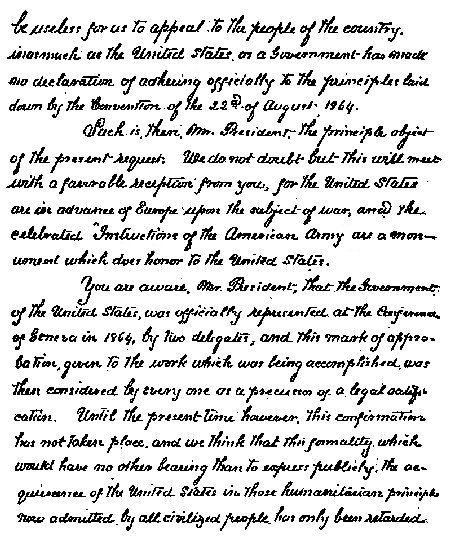 be useless for us to appeal to the people of the country,
inasmuch as the United States, as a Government has made
no declaration of adhering officially to the principles laid
down by the Convention of the 22nd of August 1864.
Such is, then, Mr. President, the principle object
of the present request. We do not doubt but this will meet
with a favorable reception from you, for the United States
are in advance of Europe upon the subject of war, and the
celebrated "Instructions of the American Army are a mon-
ument which does honor to the United States.
You are aware, Mr. President, that the Government
of the United States, was officially represented at the Conference
of Geneva in 1864, by two delegates, and this mark of appro-
bation, given to the work which was being accomplished, was
then considered by every one as a precursor of a legal ratifi-
cation. Until the present time however, this confirmation
has not taken place, and we think that this formality, which
would have no other bearing than to express publicly, the ac-
quiescence of the United States in those humanitarian principles
now admitted by all civilized people, has only been retarded